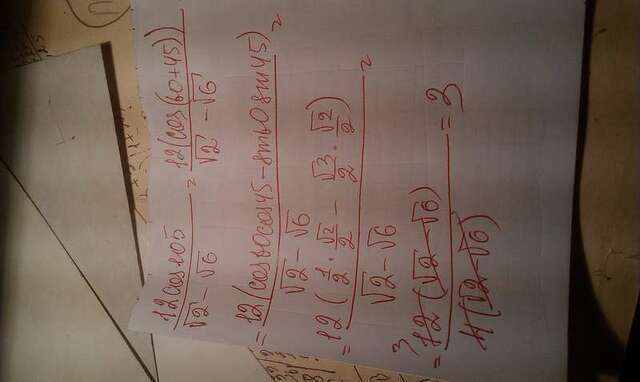 12cos105 / √2 - √6 = 12(cos(60+45)) / √2 - √6
= 12(cos60cos45 - sin60sin45) / √2 - √6 =
= 12(1/2 · √2/2 - √3/2 · √2/2) / √2 - √6 =
= 3 12(√2 - √6) / 4(√2 - √6) = 3